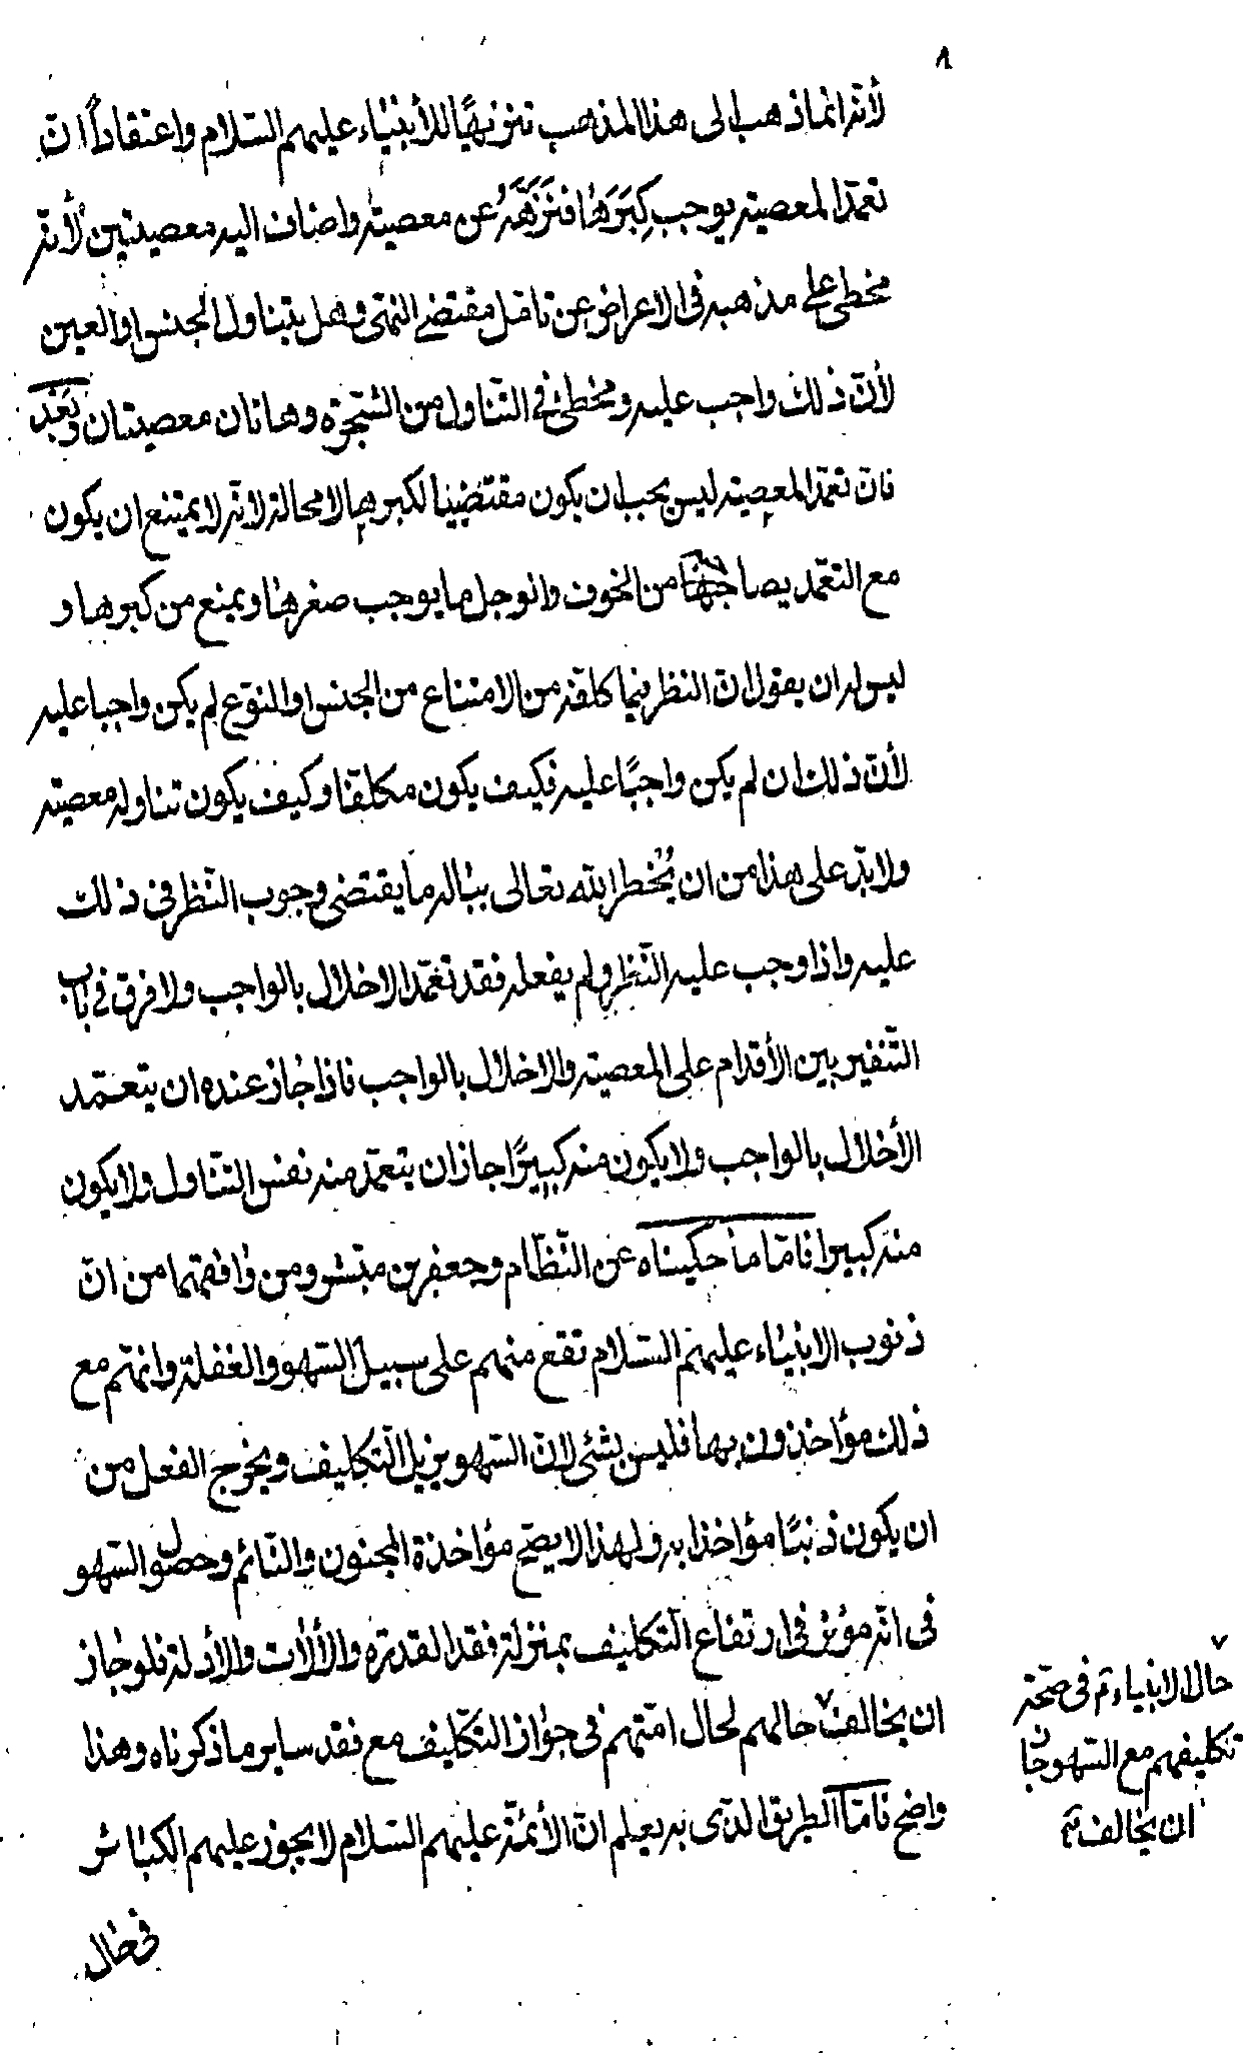 ٨
لأنّه انما ذهب الى هذا المذهب تنزيهًا للأنبياء عليهم السّلام واعتقاداً انّ
تعمّد المعصية يوجب كِبَرَهَا فنَزَّهَهُ عن معصيته واضاف اليه معصيتين لأنّه
مخطى على مذهبه فى الاعراض عن تامّل مقتضى النّهى وهل يتناول الجنس او العين
لأنّ ذلك واجب عليه ومخطئ فى التّناول من الشّجرة وهاتان معصيتان وبَعْد
فانّ تعمّد المعصية ليس يجب ان يكون مقتضيا لكبرها لا محالة لانّه لا يمتنع ان يكون
مع التعمّد يصاحبها من الخوف والوجل ما يوجب صغرها ويمنع من كبرها و
ليس له ان يقول انّ النظر فيما كلّفه من الامتناع من الجنس او النّوع لم يكن واجبا عليه
لأنّ ذلك ان لم يكن واجبًا عليه فكيف يكون مكلّفا وكيف يكون تناوله معصية
ولا بدّ على هذا من ان يُخطر الله تعالى بباله ما يقتضى وجوب النّظر فى ذلك
عليه واذا وجب عليه النّظر ولم يفعله فقد تعمّد الاخلال بالواجب ولا فرق فى باب
التّنفير بين الأقدام على المعصية والاخلال بالواجب فاذا جاز عنده ان يتعمّد
الأخلال بالواجب ولا يكون منه كبيرًا جاز ان يتعمّد منه نفس التّناول ولا يكون
منه كبيرا فامّا ما حكيناه عن النّظّام وجعفر بن مبشر ومن وافقهما من انّ
ذنوب الانبياء عليهم السّلام تقع منهم على سبيل السّهو والغفلة وانهّم مع
ذلك مؤاخذون بها فليس بشئى لانّ السّهو يزيل التّكليف ويخرج الفعل من
ان يكون ذنبًا مؤاخذا به ولهذا لا يصّح مؤاخذة المجنون والنّائم وحصول السّهو
فى انّه مؤثر فى ارتفاع التّكليف بمنزلة فقد القدرة والألآت والأدلة فلو جاز
ان يخالف حالهم لحال امّتهم فى جواز التّكليف مع فقد ساير ما ذكرناه وهذا
واضح فامّا الطريق الّذى به يعلم انّ الأئمّة عليهم السّلام لا يجوز عليهم الكبائر
فى حال
حال الانبياء ع فى صحّة
تكليفهم مع السّهو جاز
ان يخالف